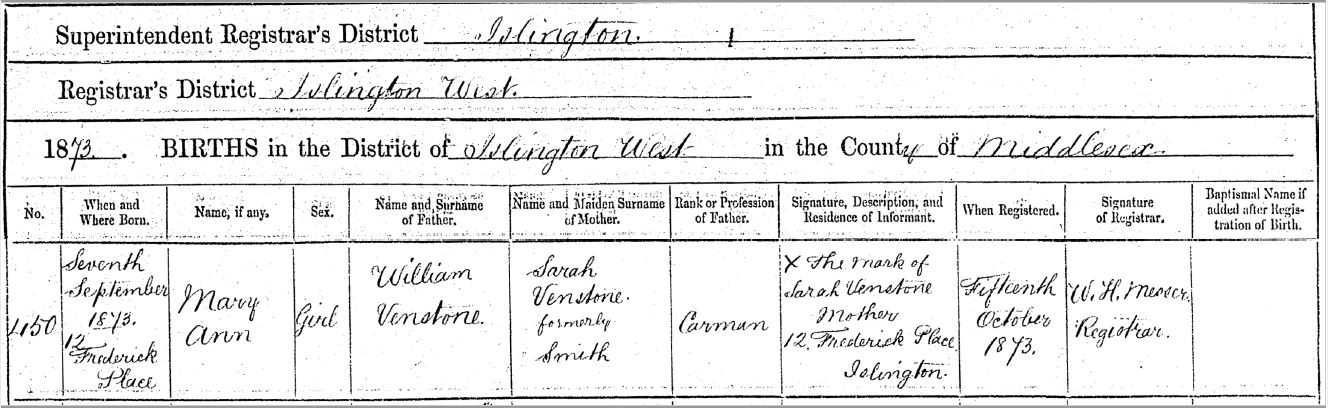 Superintendent Registrar's District Islington.
Registrar's District Islington West.
1873. BIRTHS in the District of Islington West in the County of Middlesex.
No.
When and
Where Born.
Name, if any.
Sex.
Name and Surname
of Father.
Name and Maiden Surname
of Mother.
Rank or Profession
of Father.
Signature, Description, and
Residence of Informant.
When Registered.
Signature
of Registrar.
Baptismal Name if
added after Regis-
tration of Birth.
Seventh
September
1873.
12
Frederick
Place
Mary
Ann
Girl
William
Venstone.
Sarah
Venstone.
formerly
Smith
Carman
X The mark of
Sarah Venstone
Mother
12. Frederick Place
Islington.
Fifteenth
October
1873.
W. H. Messer.
Registrar.